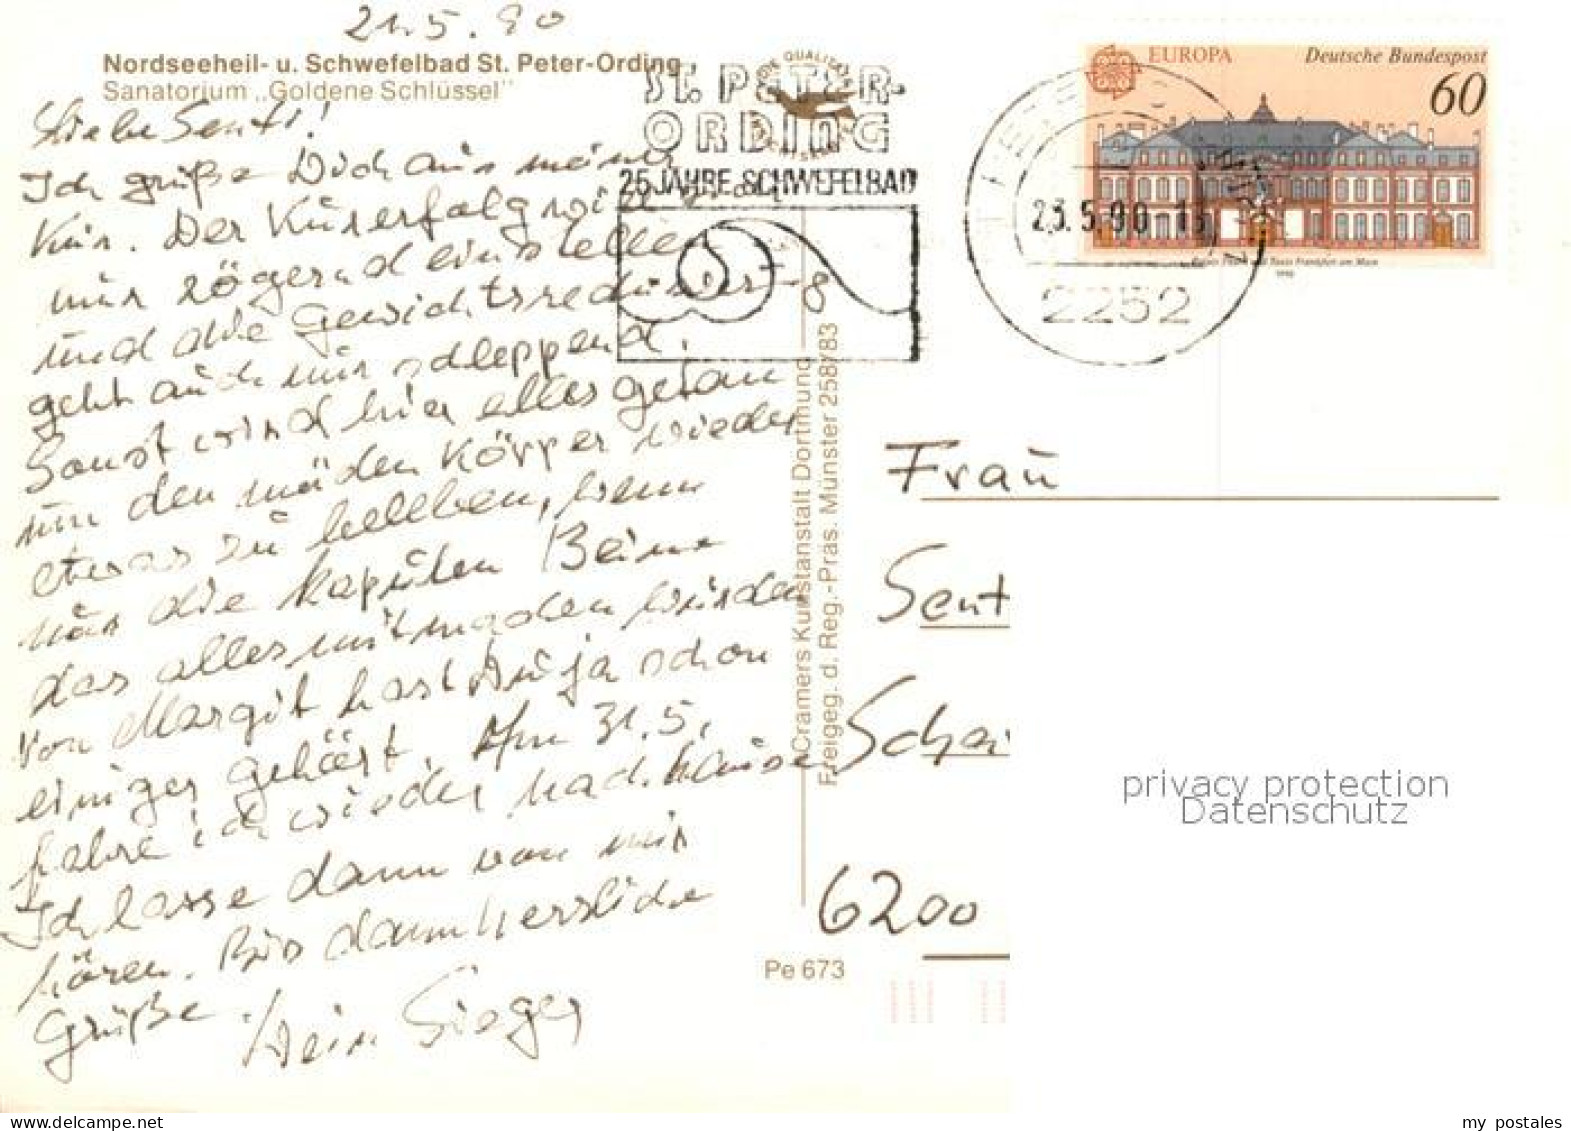 21.5.90
Nordseeheil- u. Schwefelbad St. Peter-Ording
Sanatorium „Goldene Schlüssel"
Liebe Senti!
Ich grüße Dich aus meiner
Kur. Der Kurerfolg wird
nur zögernd einstellen
und die Gewichtsreduzierung
geht auch nur schleppend.
Sonst wird hier alles getan
um den müden Körper wieder
etwas zu beleben, wenn
nur die kaputen Beine
das alles mitmachen würden
Von Margit hast Du ja schon
einiges gehört. Am 31.5.
fahre ich wieder nach hause
Ich lasse dann von mir
hören. Bis dann herzliche
Grüße.
Dein Sieger
ST. PETER-
ORDING
25 JAHRE SCHWEFELBAD
23.5.90
2252
EUROPA
Deutsche Bundespost
60
Palais Thurn und Taxis Frankfurt am Main
1990
Cramers Kunstanstalt Dortmund
Freigeg. d. Reg.-Präs. Münster 258/83
Frau
Sent
Schei
6200
Pe 673
privacy protection
Datenschutz
my_postales